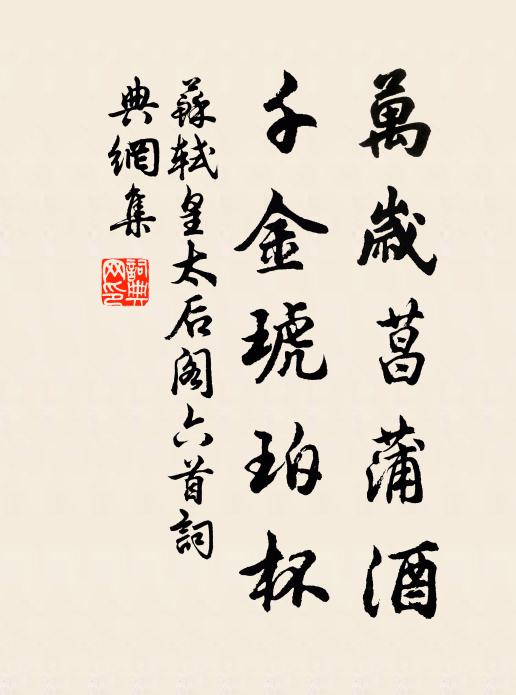 萬歲菖蒲酒
千金琥珀杯
蘇軾皇太后閣六首詞
典網集
詞典
网印